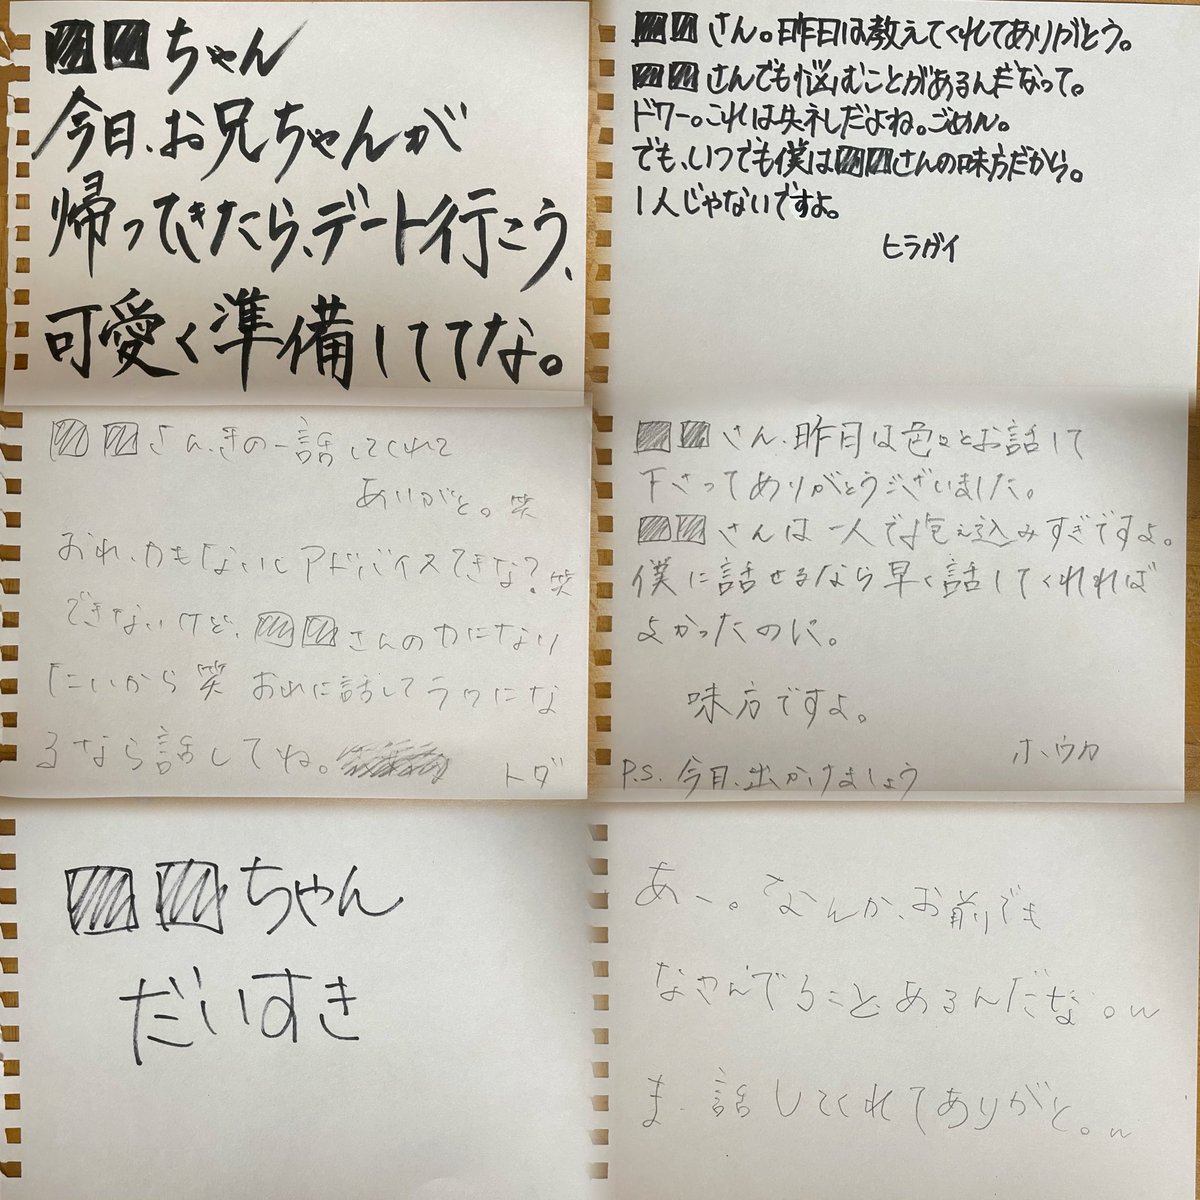 ちゃん
今日、お兄ちゃんが
帰ってきたら、デート行こう、
可愛く準備しててな。
さん。昨日は教えてくれてありがとう。
さんでも悩むことがあるんだなって。
ドワー。これは失礼だよね。ごめん。
でも、いつでも僕はさんの味方だから。
1人じゃないですよ。
ヒラガイ
さん、きの一話してくれて
ありがと。笑
おれ、力もないにアドバイスできな?笑
できないけど、さんの力になり
たいから笑 おれに話してラクにな
るなら話してね。
トダ
さん、昨日は色々とお話して
下さってありがとうございました。
さんは一人で抱え込みすぎですよ。
僕に話せるなら早く話してくれれば
よかったのに。
味方ですよ。
ホウカ
P.S. 今日、出かけましょう
ちゃん
だいすき
あー。なんか、お前でも
なやんでることあるんだな。w
ま、話してくれてありがと。w